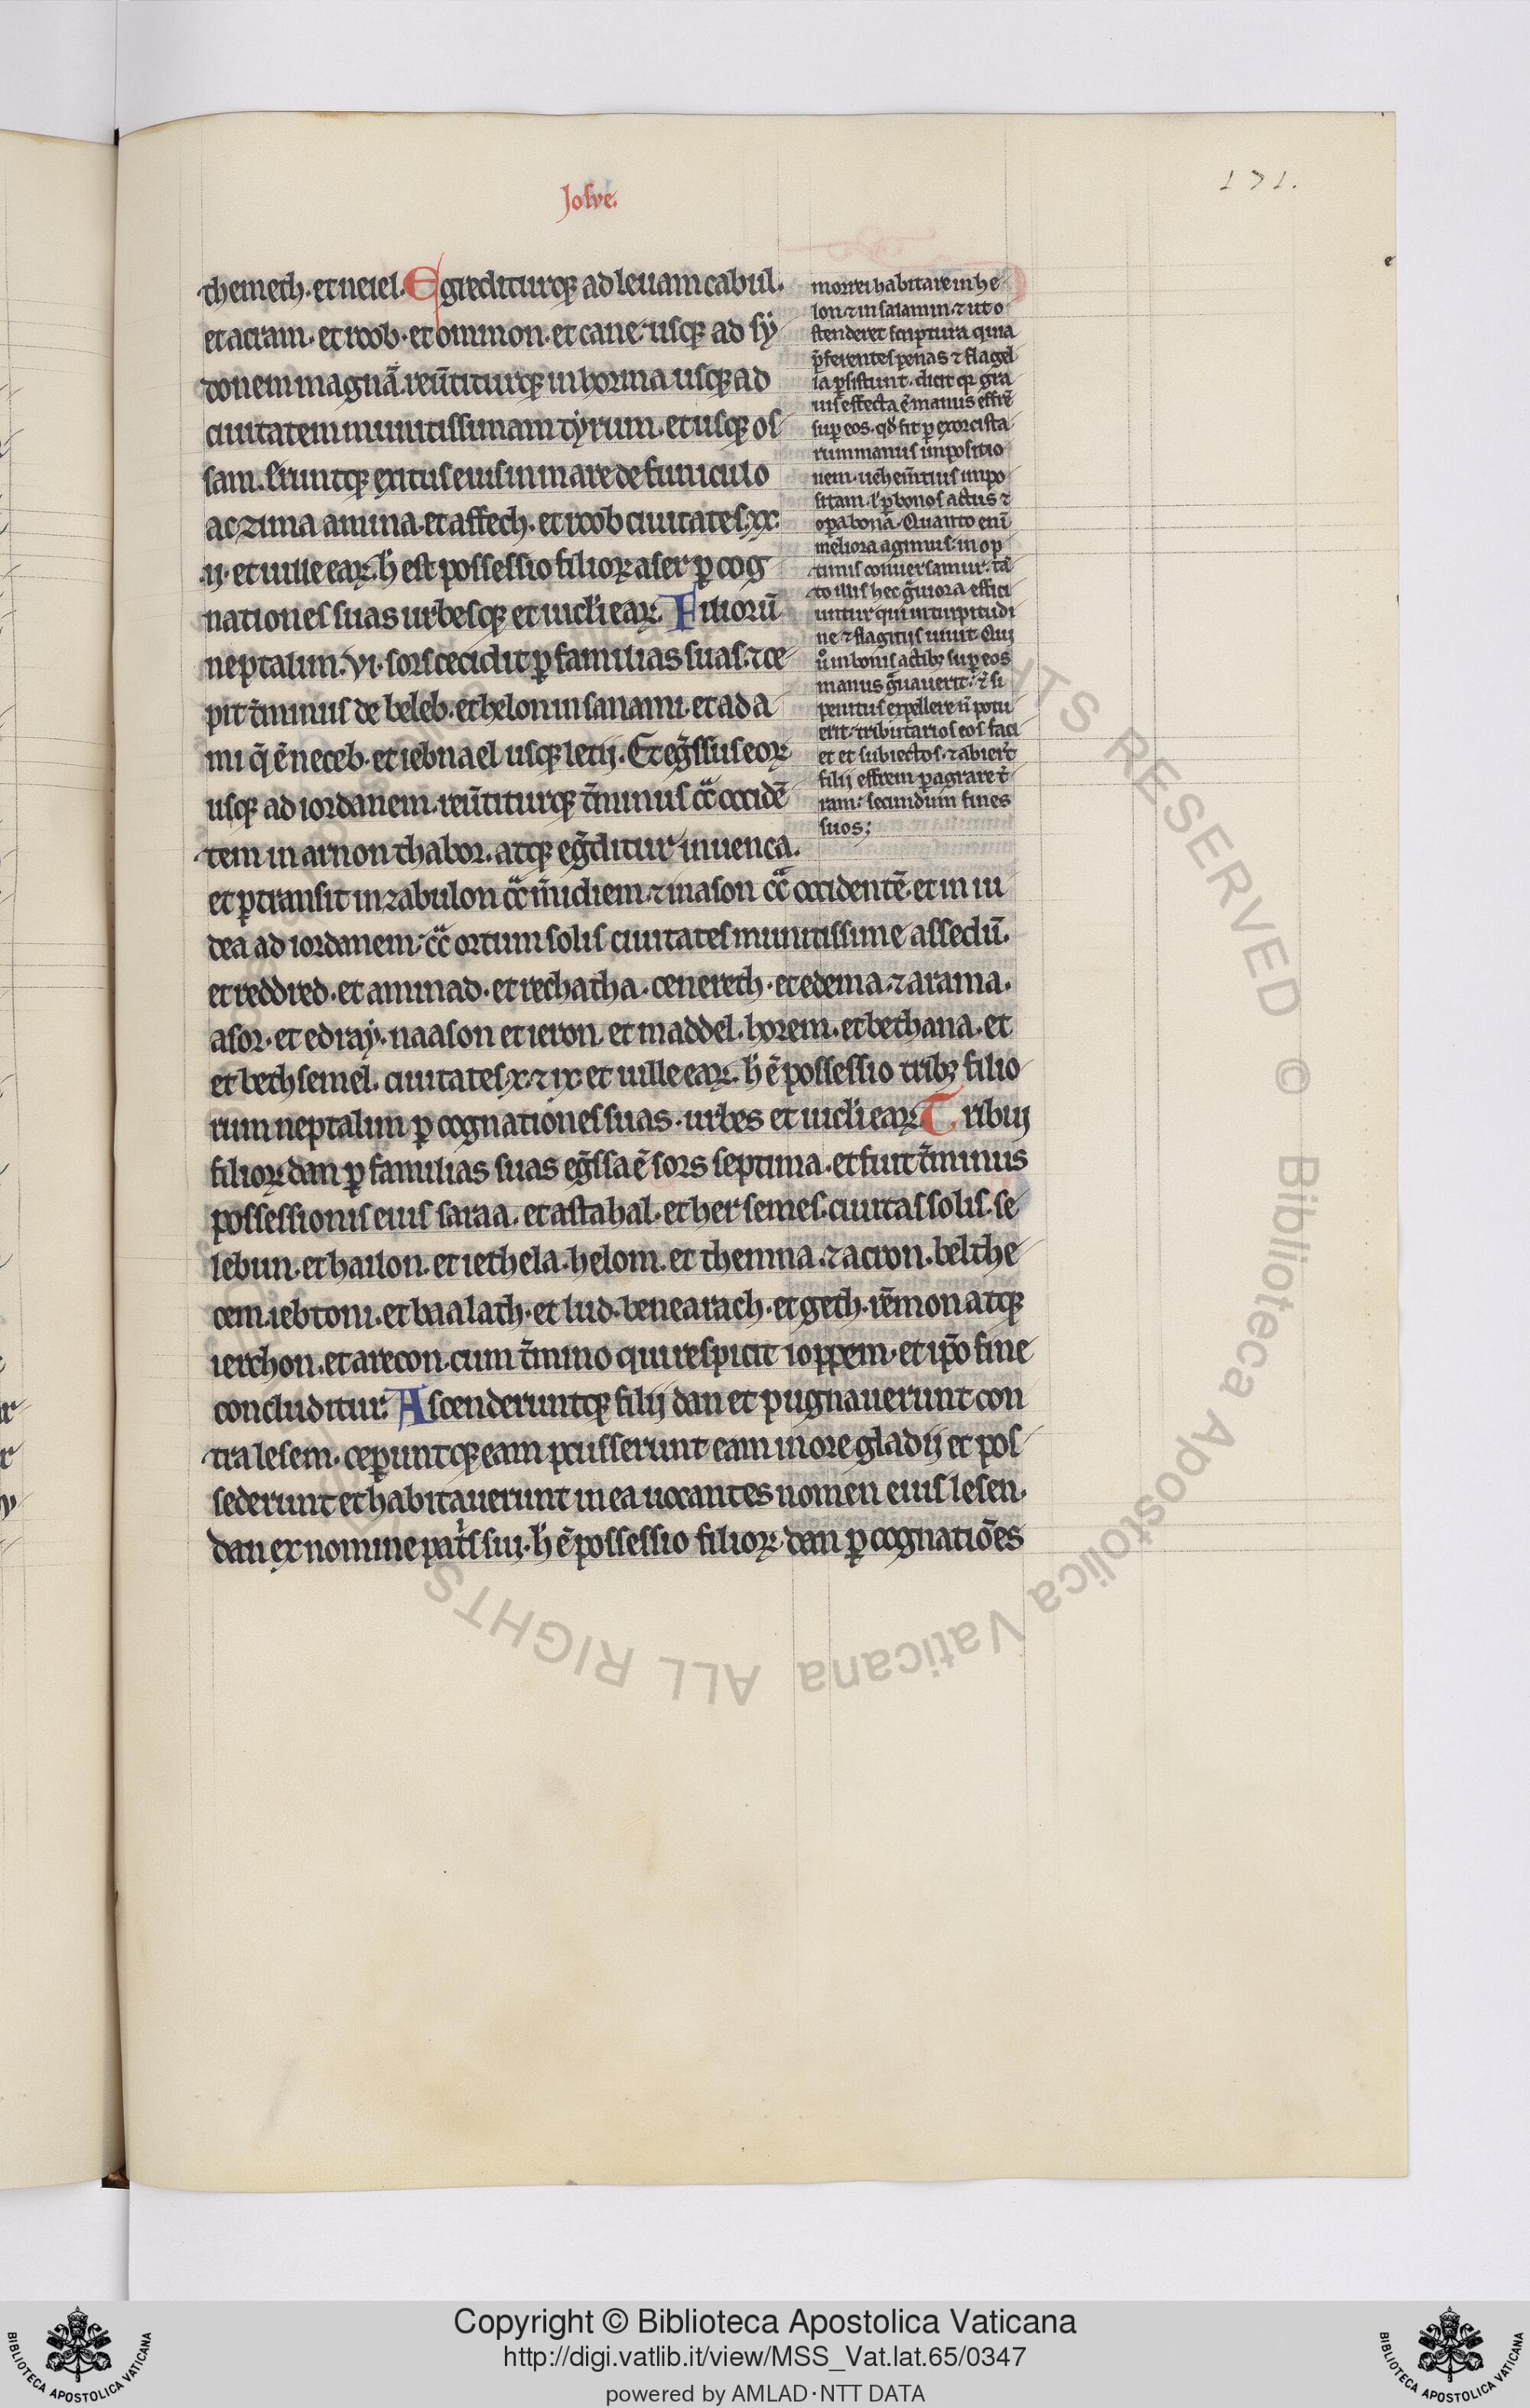 Josue.
171.
themech. et neiel. Egrediturq; ad leuam cabul.
et acram. et roob. et ommon. et cane. usq; ad sy
donem magnā. reũtiturq; in horma usq; ad
ciuitatem munitissimam tyrum. et usq; os
sam. Eruntq; exitus eius in mare de funiculo
aczima amma. et affech. et roob ciuitates. xx.
ij. et uille eaꝝ. h̄ est possessio filioꝝ aser ꝑ cog
nationes suas urbesq; et uiculi eaꝝ. Filiorū
neptalim. vi. sors cecidit ꝑ familias suas. ⁊ ce
pit t̄minus de heleb. et helon in sananni. et ada
mi q̄ ē neceb. et iebnael usq; letij. Et eg̃ssus eoꝝ
usq; ad iordanem. reũtiturq; t̄minus cͣ occidē
tem in arnon thabor. atq; eg̃ditur in uenca.
et ꝑtransit in zabulon cͣ m̃idiem. ⁊ in ason cͣ occidentē et in iu
dea ad iordanem. cͣ ortum solis ciuitates munitissime assedū.
et reddred. et aminad. et rechatha. cenereth. et edema. ⁊ arama.
asor. et edray. naason et ieron. et maddel. horem. et bethana. et
et bethsemel. ciuitates. x. ⁊ ix. et uille eaꝝ. h̄ ē possessio tribꝫ filio
rum neptalim ꝑ cognationes suas. urbes et uiculi eaꝝ. Tribui
filioꝝ dan ꝑ familias suas eg̃ssa ē sors septima. et fuit t̄minus
possessionis eius saraa. et astahal. et hersemes. ciuitas solis. se
lebun. et hailon. et iethela. helom. et themna. ⁊ acron. helthe
cem. iebtoni. et baalath. et lud. benearach. et geth. rēmon atq;
ierchon. et arecon. cum t̄mino qui respicit ioppem. et ip̄o fine
concluditur. Ascenderuntq; filij dan et pugnauerunt con
tra lesem. ceꝑuntq; eam ꝑcusserunt eam in ore gladij et pos
sederunt et habitauerunt in ea uocantes nomen eius lesen.
dan ex nomine pat̃s sui. h̄ ē possessio filioꝝ dan ꝑ cognatiōes
morrei habitare in he
lon. ⁊ in salamin. ⁊ ut o
stenderet scriptura quia
p̄ferentes penas ⁊ flagel
la ꝑsistunt. dicit qꝛ gra
uis effecta ē manus effrē
suꝑ eos. qd̄ fit ꝑ exorcista
rum manus impositio
nem. uehem̃tius impo
sitam. l̃ ꝑ bonos actus ⁊
oꝑa bona. Quanto enī
meliora agimus. in op
timis conuersamur. tā
to illis hec g̃uiora effici
untur qui in turpitudi
ne ⁊ flagitijs uiuit. Qui
uͦ in bonis actibꝫ suꝑ eos
manus g̃uauerit. ⁊ si
penitus expellere ñ potu
erit. tributarios eos faci
et et subiectos. ⁊ abier̃t
filij effrem ꝑagrare t̃
ram. secundum fines
suos;
ALL RIGHTS RESERVED © Biblioteca Apostolica Vaticana
Copyright © Biblioteca Apostolica Vaticana
http://digi.vatlib.it/view/MSS_Vat.lat.65/0347
powered by AMLAD·NTT DATA
BIBLIOTECA APOSTOLICA VATICANA
BIBLIOTECA APOSTOLICA VATICANA